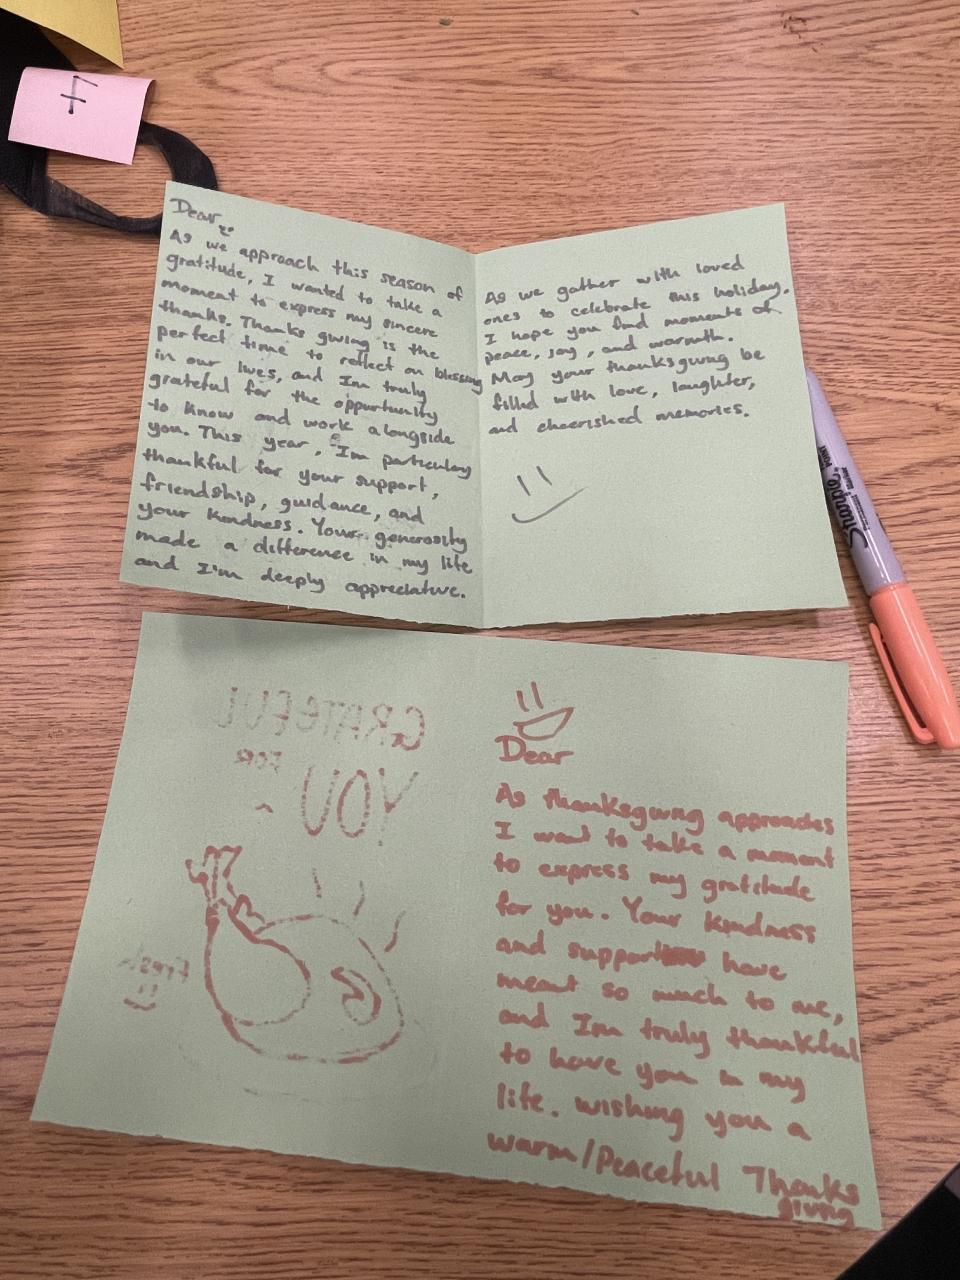 F
Dear,
As we approach this season of
gratitude, I wanted to take a
moment to express my sincere
thanks. Thanks giving is the
perfect time to reflect on blessing
in our lives, and Im truly
grateful for the oppurtunity
to know and work alongside
you. This year, I'm particulary
thankful for your support,
friendship, guidance, and
your kindness. Your generosity
made a difference in my life
and I'm deeply appreciative.
As we gather with loved
ones to celebrate this holiday.
I hope you find moments of
peace, joy, and warmth.
May your thanksgiving be
filled with love, laughter,
and cheerished memories.
Sharpie
GRATEFUL
FOR
YOU
Fresh
Dear
As thanksgiving approaches
I want to take a moment
to express my gratitude
for you. Your kindness
and support have
meant so much to me,
and Im truly thankful
to have you in my
life. wishing you a
warm/Peaceful Thanks
giving